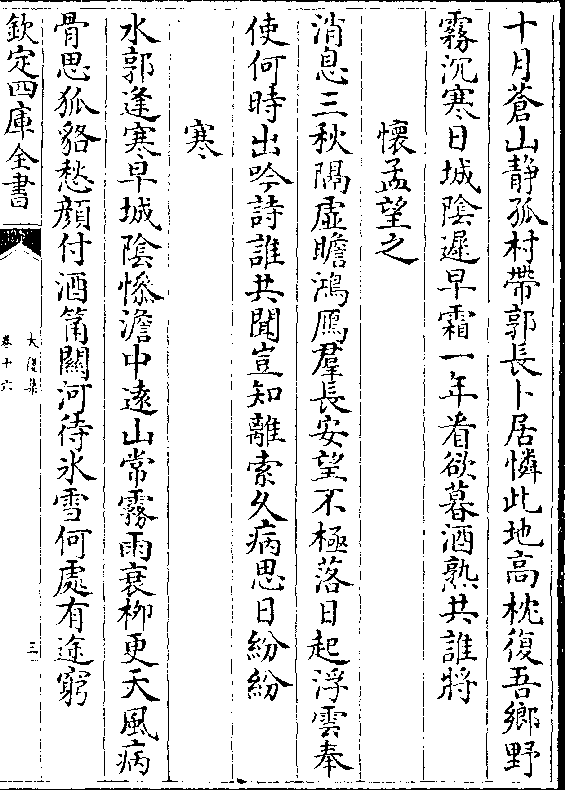 十月蒼山静孤村帶郭長卜居憐此地高枕復吾鄉野
霧沉寒日城陰遲早霜一年看欲暮酒熟共誰將
懷孟望之
消息三秋隔虛瞻鴻鴈羣長安望不極落日起浮雲奉
使何時出吟詩誰共聞豈知離索久病思日紛紛
寒
水郭逢寒早城陰慘澹中遠山常霧雨衰柳更天風病
骨思狐貉愁顔付酒筩關河待氷雪何處有途窮
欽定四庫全書
大復集
卷十六
三